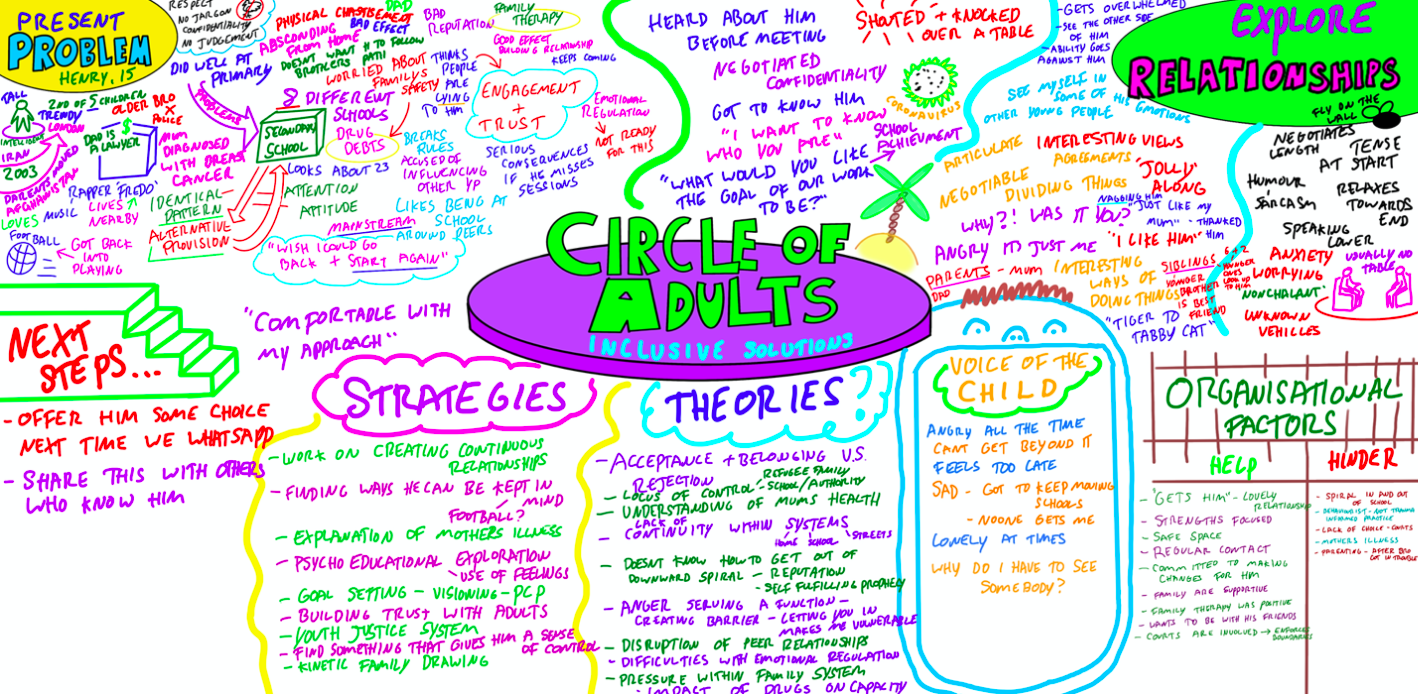 PRESENT
PROBLEM
HENRY, 15
RESPECT
NO JARGON
CONFIDENTIALITY
NO JUDGEMENT
DID WELL AT
PRIMARY
PROBLEMS
PHYSICAL CHASTISEMENT
DAD
ABSCONDING
FROM HOME
BAD EFFECT
DOESNT WANT H TO FOLLOW
BROTHERS PATH
BAD
REPUTATION
FAMILY
THERAPY
GOOD EFFECT
BUILDING RELATIONSHIP
KEEPS COMING
WORRIED ABOUT
FAMILYS
SAFETY
THINKS
PEOPLE
ARE
LYING
TO HIM
ENGAGEMENT
+
TRUST
EMOTIONAL
REGULATION
NOT READY
FOR THIS
SERIOUS
CONSEQUENCES
IF HE MISSES
SESSIONS
TALL
INTELLIGENT
IRAN
2003
2ND OF 5 CHILDREN
TRENDY
LONDON
OLDER BRO
X
POLICE
DAD IS $
A LAWYER
MUM
DIAGNOSED
WITH BREAST
CANCER
PARENTS MOVED
AFGHANISTAN
LOVES
MUSIC
RAPPER 'FREDO'
LIVES
NEARBY
FOOTBALL
GOT BACK
INTO
PLAYING
SECONDARY
SCHOOL
8 DIFFERENT
SCHOOLS
DRUG
DEBTS
BREAKS
RULES
ACCUSED OF
INFLUENCING
OTHER YP
LOOKS ABOUT 23
ATTENTION
APTITUDE
IDENTICAL
PATTERN
ALTERNATIVE
PROVISION
MAINSTREAM
LIKES BEING AT
SCHOOL
AROUND PEERS
"WISH I COULD GO
BACK + START AGAIN"
HEARD ABOUT HIM
BEFORE MEETING
NEGOTIATED
CONFIDENTIALITY
GOT TO KNOW HIM
"I WANT TO KNOW
WHO YOU ARE"
SCHOOL
ACHIEVEMENT
"WHAT WOULD YOU LIKE
THE GOAL OF OUR WORK
TO BE?"
SHOUTED + KNOCKED
OVER A TABLE
CORONAVIRUS
- GETS OVERWHELMED
- SEE THE OTHER SIDE
OF HIM
- ABILITY GOES
AGAINST HIM
SEE MYSELF IN
SOME OF HIS EMOTIONS
OTHER YOUNG PEOPLE
EXPLORE
RELATIONSHIPS
FLY ON THE
WALL
ARTICULATE
INTERESTING VIEWS
AGREEMENTS
NEGOTIABLE
DIVIDING THINGS
"JOLLY"
ALONG
NAGGING HIM
"JUST LIKE MY
MUM" - THANKED
HIM
WHY?! WAS IT YOU?
ANGRY ITS JUST ME
"I LIKE HIM"
PARENTS - MUM
DAD
INTERESTING
WAYS OF
DOING THINGS
SIBLINGS
YOUNGER
BROTHER
IS BEST
FRIEND
6 + 2
YOUNGER
ONES
LOOK UP
TO HIM
"TIGER TO
TABBY CAT"
NEGOTIATES
LENGTH
TENSE
AT START
HUMOUR
SARCASM
RELAXES
TOWARDS
END
SPEAKING
LOWER
ANXIETY
WORRYING
'NONCHALANT'
UNKNOWN
VEHICLES
USUALLY NO
TABLE
CIRCLE OF
ADULTS
INCLUSIVE SOLUTIONS
NEXT
STEPS...
- OFFER HIM SOME CHOICE
NEXT TIME WE WHATSAPP
- SHARE THIS WITH OTHERS
WHO KNOW HIM
"COMFORTABLE WITH
MY APPROACH"
STRATEGIES
- WORK ON CREATING CONTINUOUS
RELATIONSHIPS
- FINDING WAYS HE CAN BE KEPT IN
MIND
FOOTBALL?
- EXPLANATION OF MOTHERS ILLNESS
- PSYCHO EDUCATIONAL EXPLORATION
- USE OF FEELINGS
- GOAL SETTING - VISIONING - PCP
- BUILDING TRUST WITH ADULTS
- YOUTH JUSTICE SYSTEM
- FIND SOMETHING THAT GIVES HIM A SENSE
OF CONTROL
- KINETIC FAMILY DRAWING
THEORIES?
- ACCEPTANCE + BELONGING V.S.
REJECTION
REFUGEE FAMILY
- LOCUS OF CONTROL - SCHOOL/AUTHORITY
- UNDERSTANDING OF MUMS HEALTH
- LACK OF
CONTINUITY WITHIN SYSTEMS
HOME SCHOOL STREETS
- DOESNT KNOW HOW TO GET OUT OF
DOWNWARD SPIRAL - REPUTATION
- SELF FULFILLING PROPHELY
- ANGER SERVING A FUNCTION -
CREATING BARRIER - LETTING YOU IN
MAKES ME VULNERABLE
- DISRUPTION OF PEER RELATIONSHIPS
- DIFFICULTIES WITH EMOTIONAL REGULATION
- PRESSURE WITHIN FAMILY SYSTEM
- IMPACT OF DRUGS ON CAPACITY
VOICE OF THE
CHILD
ANGRY ALL THE TIME
CANT GET BEYOND IT
FEELS TOO LATE
SAD - GOT TO KEEP MOVING
SCHOOLS
- NOONE GETS ME
LONELY AT TIMES
WHY DO I HAVE TO SEE
SOMEBODY?
ORGANISATIONAL
FACTORS
HELP
- "GETS HIM" - LOVELY
RELATIONSHIP
- STRENGTHS FOCUSED
- SAFE SPACE
- REGULAR CONTACT
- COMMITTED TO MAKING
CHANGES FOR HIM
- FAMILY ARE SUPPORTIVE
- FAMILY THERAPY WAS POSITIVE
- WANTS TO BE WITH HIS FRIENDS
- COURTS ARE INVOLVED → ENFORCE
BOUNDARIES
HINDER
- SPIRAL IN AND OUT
OF SCHOOL
- BEHAVIOURIST - NOT TRAUMA
INFORMED PRACTICE
- LACK OF CHOICE - COURTS
- MOTHERS ILLNESS
- PARENTING - AFTER BRO
GOT IN TROUBLE